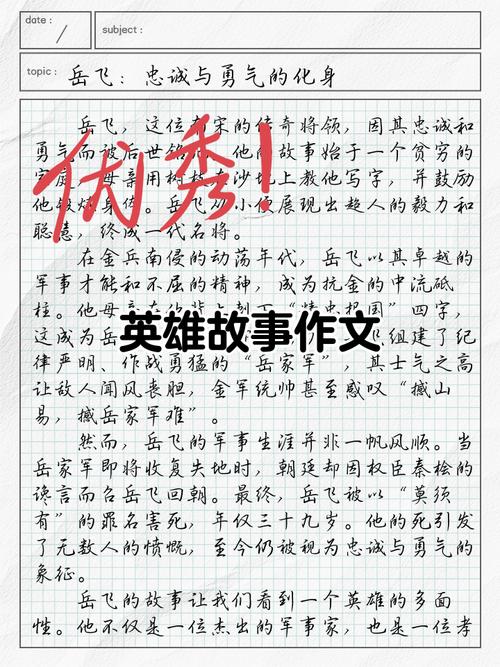 date :
subject :
topic : 岳飞：忠诚与勇气的化身
岳飞，这位南宋的传奇将领，因其忠诚和
勇气而被后世铭记。他的故事始于一个贫穷的
家庭，母亲用树枝在沙地上教他写字，并鼓励
他锻炼身体。岳飞从小便展现出超人的毅力和
聪慧，终成一代名将。
优秀！
在金兵南侵的动荡年代，岳飞以其卓越的
军事才能和不屈的精神，成为抗金的中流砥
柱。他母亲在他背上刺下“精忠报国”四字，
这成为岳
组建了纪
英雄故事作文
律严明、作战勇猛的“岳家军”，其士气之高
让敌人闻风丧胆，金军统帅甚至感叹“撼山
易，撼岳家军难”。
然而，岳飞的军事生涯并非一帆风顺。当
岳家军即将收复失地时，朝廷却因权臣秦桧的
谗言而召岳飞回朝。最终，岳飞被以“莫须
有”的罪名害死，年仅三十九岁。他的死引发
了无数人的愤慨，至今仍被视为忠诚与勇气的
象征。
岳飞的故事让我们看到一个英雄的多面
性。他不仅是一位杰出的军事家，也是一位孝